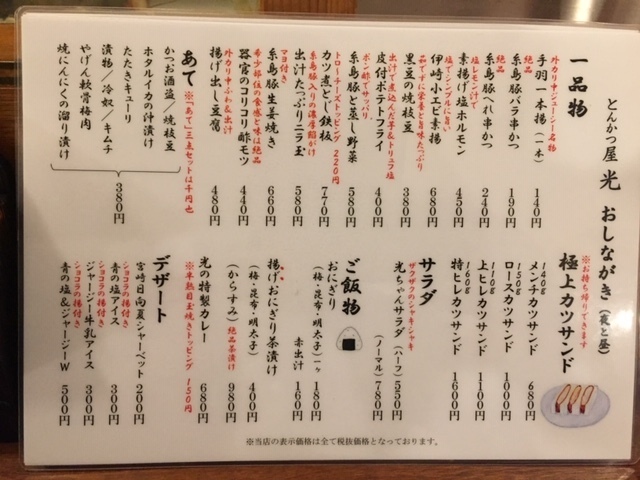 とんかつ屋 光 おしながき (夜と昼)
一品物
外カリ中ジューシー名物
手羽一本揚 (一本) 140円
絶品
糸島豚バラ串かつ 190円
絶品
糸島豚へれ串かつ 240円
塩レモン汁で
素揚げ塩ホルモン 450円
塩でシンプルに旨い
伊崎小エビ素揚 680円
茹でずに栄養と旨味たっぷり
黒豆の焼枝豆 380円
出汁で煮込んだ芋&トリュフ塩
皮付ポテトフライ 400円
ポン酢でサッパリ
糸島豚と蒸し野菜 580円
トローチーズトッピング 220円
カツ煮とじ鉄板 770円
糸島豚入りの濃厚餡がけ
出汁たっぷりニラ玉 580円
マヨ付き
糸島豚生姜焼き 660円
希少部位の食感と味は絶品
器官のコリコリ酢モツ 440円
外カリ中ふわ&出汁
揚げ出し豆腐 480円
あて ※「あて」三点セットは千円也
かつお酒盗/焼枝豆
ホタルイカの沖漬け
たたきキューリ
漬物/冷奴/キムチ
やげん軟骨梅肉
焼にんにくの溜り漬け
380円
極上カツサンド
※お持ち帰りできます
140g
メンチカツサンド 680円
150g
ロースカツサンド 1000円
110g
上ヒレカツサンド 1100円
160g
特ヒレカツサンド 1600円
サラダ
ザクザクのシャキシャキ
光ちゃんサラダ (ハーフ) 550円
(ノーマル) 780円
ご飯物
おにぎり
(梅・昆布・明太子) 一ヶ 180円
赤出汁 160円
揚げおにぎり茶漬け
(梅・昆布・明太子) 400円
(からすみ) 絶品茶漬け 980円
光の特製カレー 680円
※半熟目玉焼きトッピング 150円
デザート
宮崎日向夏シャーベット 200円
ショコラの揚付き
青の塩アイス 300円
ショコラの揚付き
ジャージー牛乳アイス 300円
ショコラの揚付き
青の塩&ジャージーW 500円
※当店の表示価格は全て税抜価格となっております。